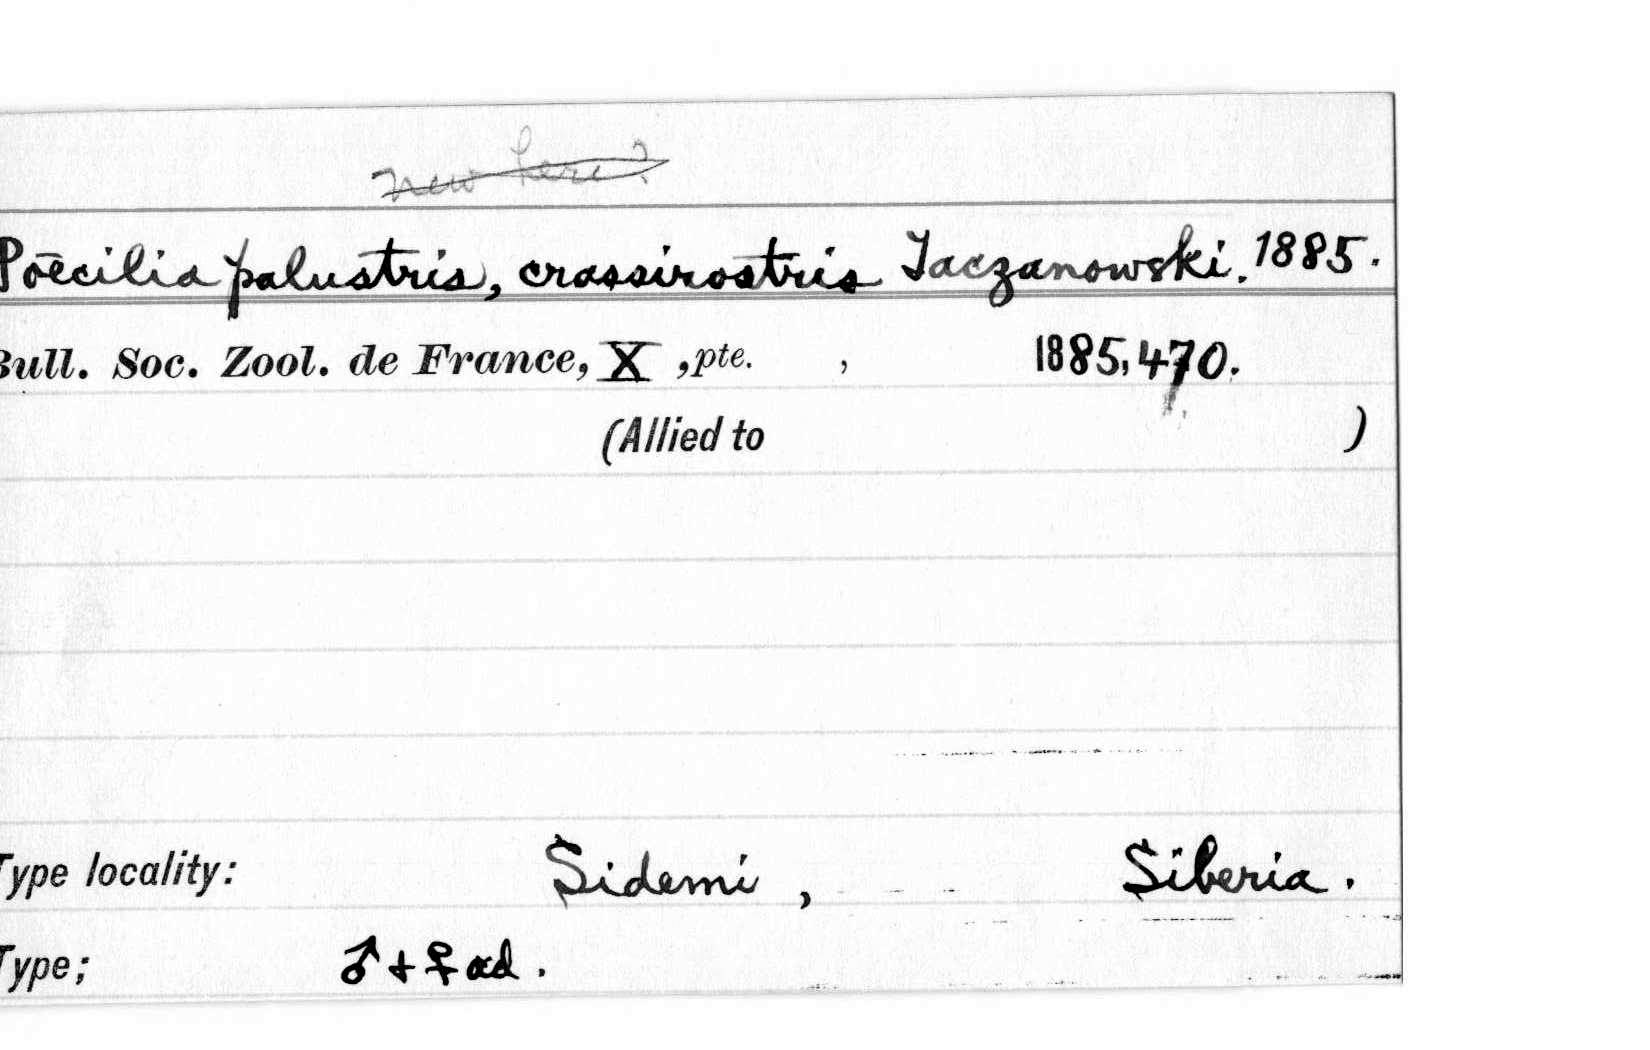 new here?
Poecilia palustris, crassirostris Taczanowski. 1885.
Bull. Soc. Zool. de France, X , pte. , 1885, 470.
(Allied to )
Type locality: Sidemi , Siberia .
Type; ♂ + ♀ ad .